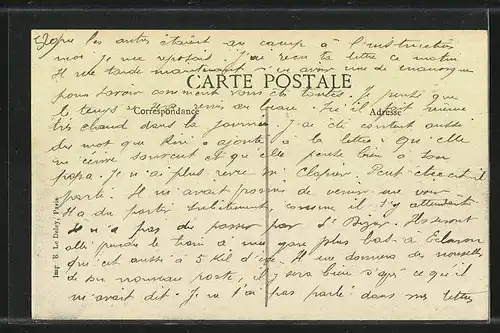 que les autres étaient au camp à l'instruction
moi je me reposais. J'ai reçu ta lettre ce matin
Il me tarde maintenant d'avoir une de
CARTE POSTALE
pour savoir comment vous êtes toutes. Je pense que
le temps est remis au beau. Ici il fait même
Correspondance
Adresse
très chaud dans la journée. J'ai été content aussi
du mot que Riri a ajouté à la lettre. Qu'elle
m'écrive souvent et qu'elle pense bien à son
papa. Je n'ai plus revu M. Clapier. Peut-être est-il
parti. Il m'avait promis de venir me voir
Il a dû partir subitement comme il s'y attendait
n'a pas dû passer par St Dizier. Ils seront
allé prendre le train à une gare plus bas à Eclaron
qui est aussi à 5 Kil d'ici. Il me donnera des nouvelles
de son nouveau poste. Il y sera bien d'après ce qu'il
m'avait dit. Je ne t'ai pas parlé dans mes lettres
Imp. E. Le Deley, Paris